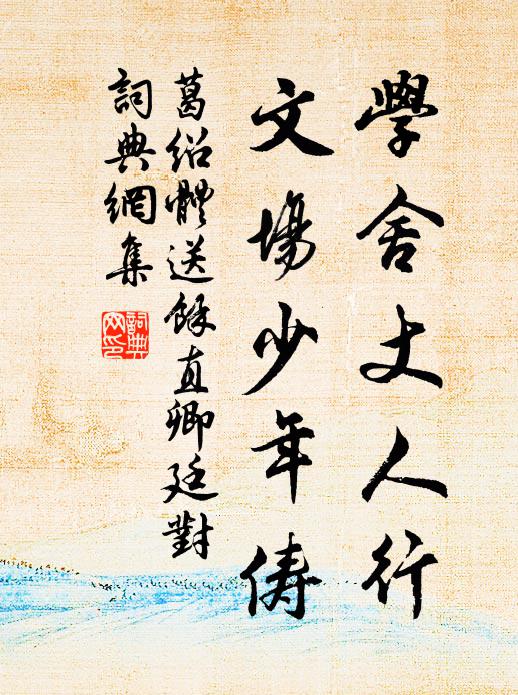 學舍丈人行
文場少年儔
葛紹體送餘直卿廷對
詞典網集
詞典網印